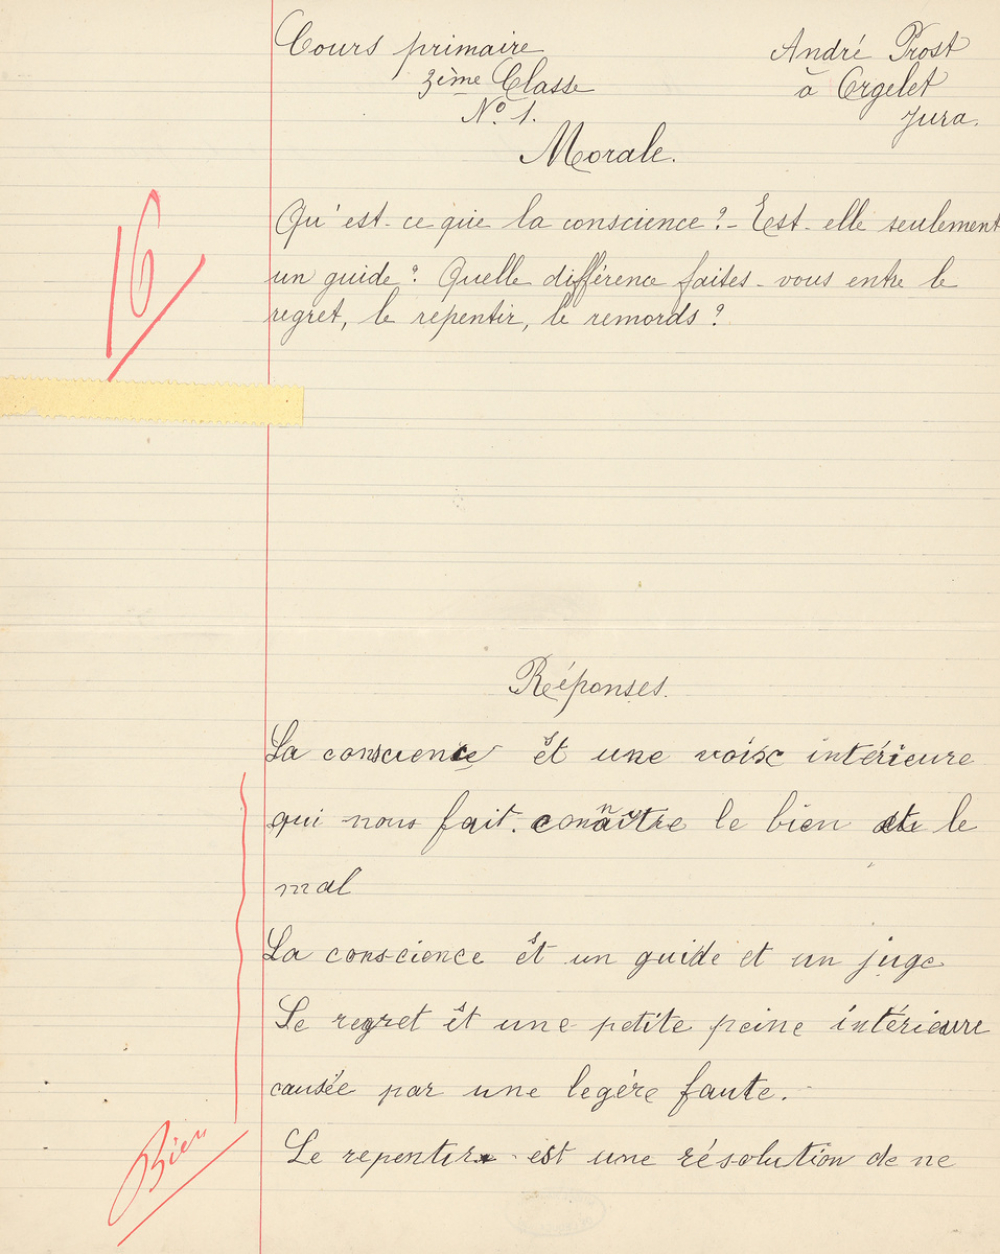 Cours primaire
André Prost
3ème Classe
à Orgelet
Nº 1.
Jura.
Morale.
16
Qu'est-ce que la conscience ? - Est-elle seulement
un guide ? Quelle différence faites-vous entre le
regret, le repentir, le remords ?
Réponses.
La conscience est une voix intérieure
qui nous fait connaître le bien et le
mal
La conscience est un guide et un juge
Le regret est une petite peine intérieure
causée par une legère faute.
Bien
Le repentir est une résolution de ne